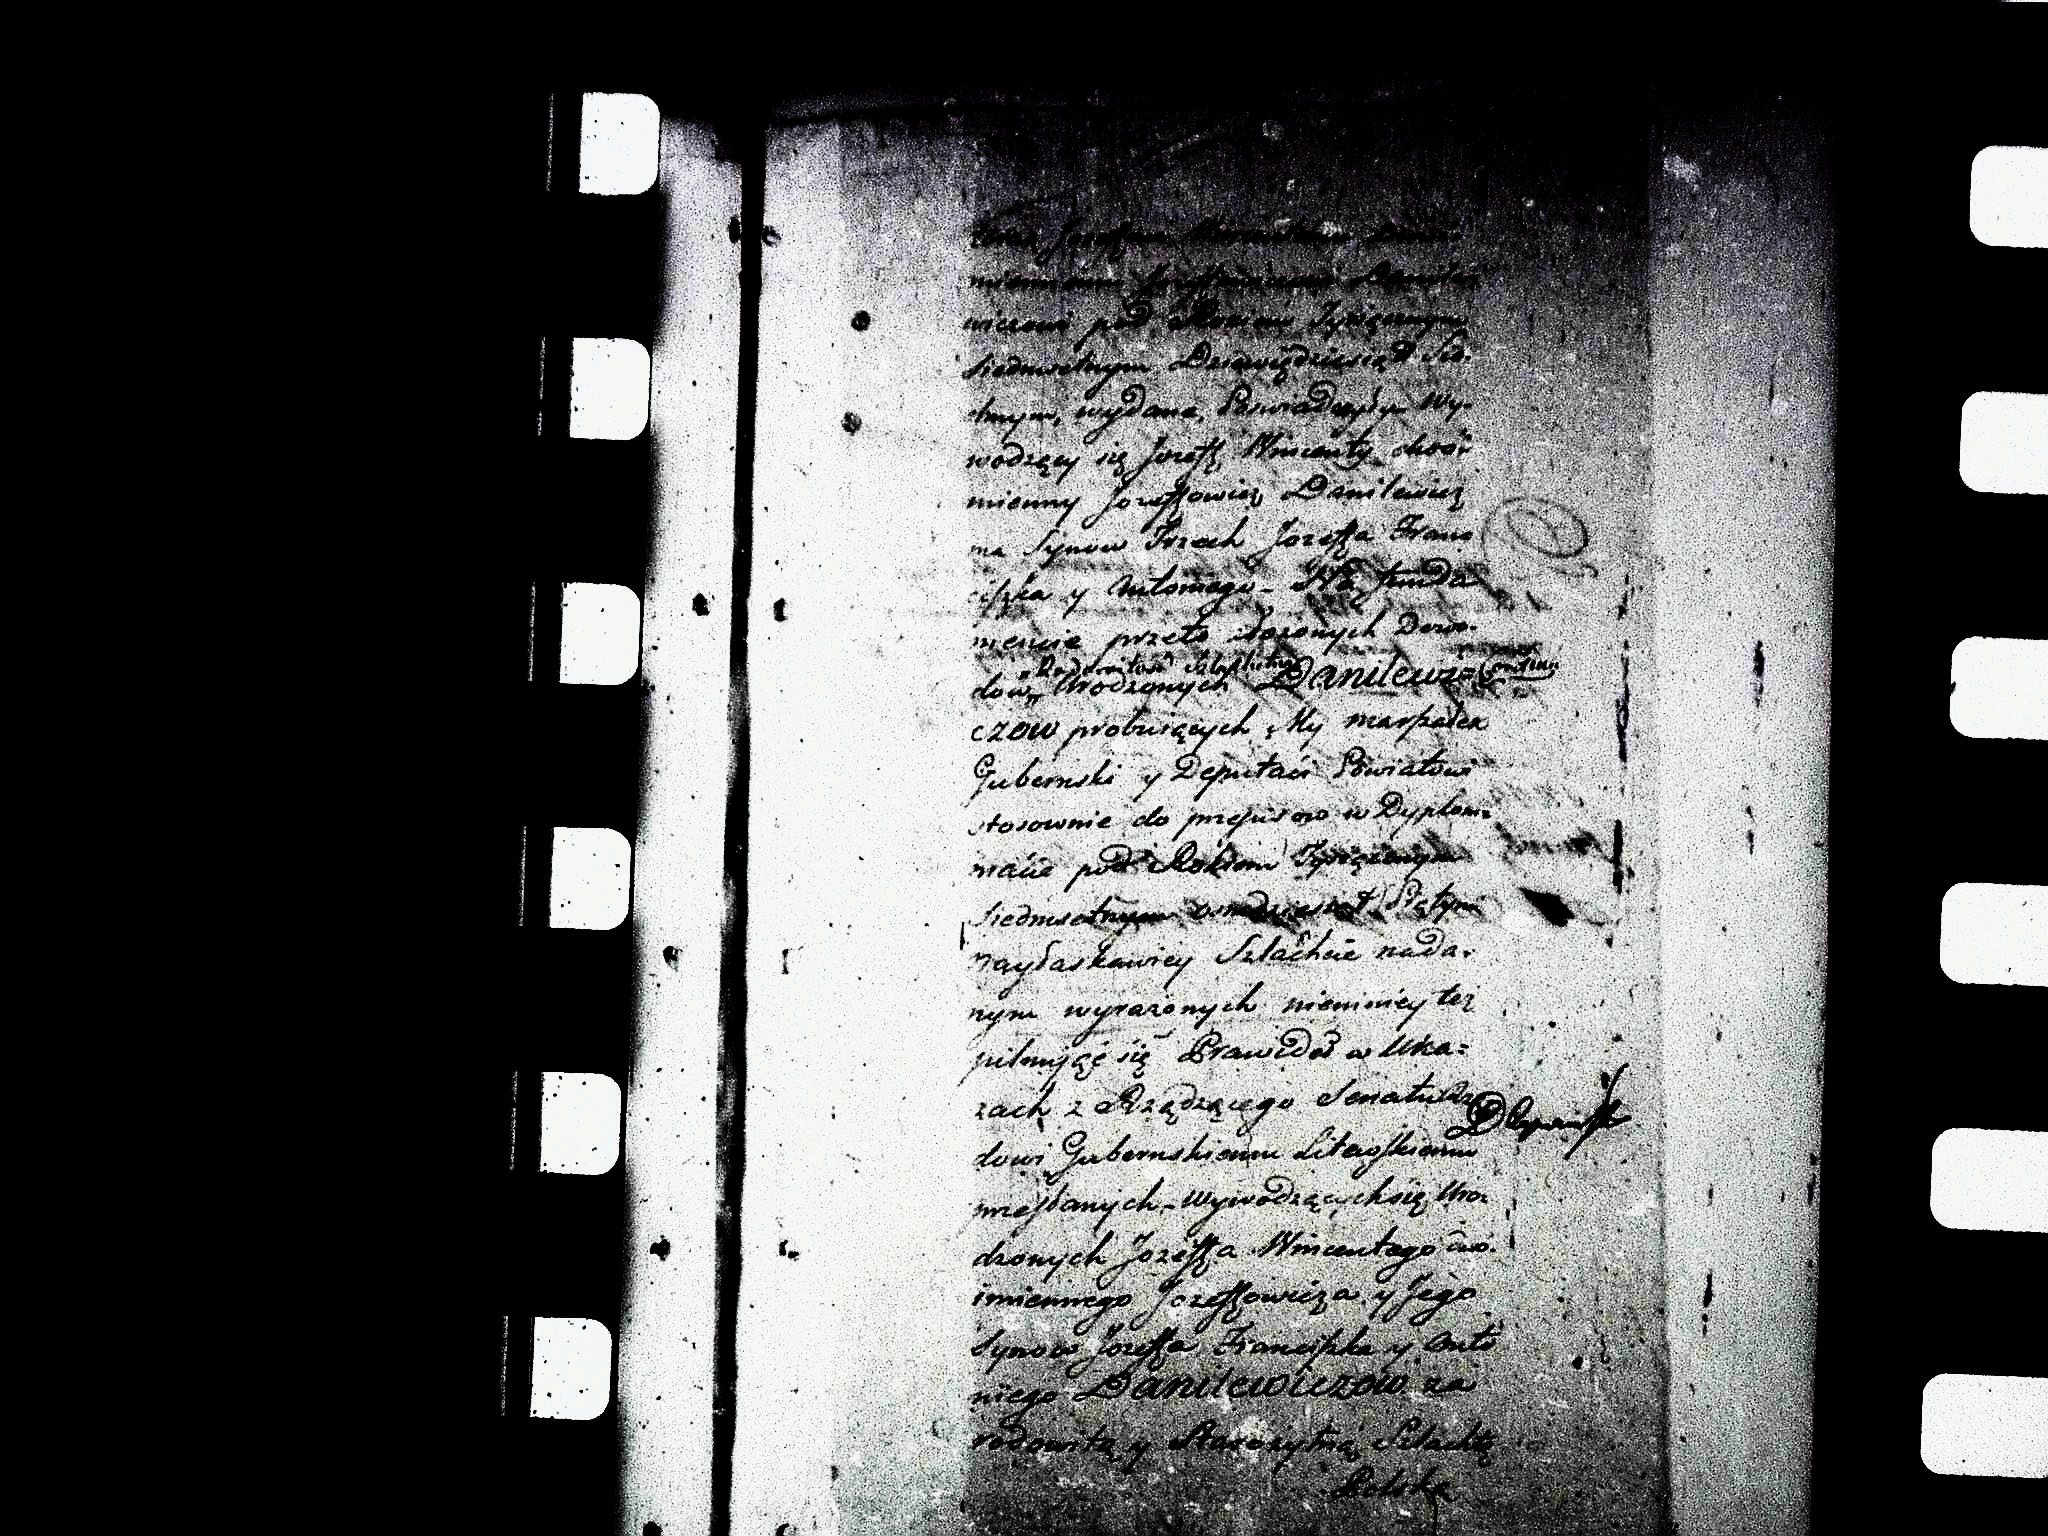 Jozeffem
Jozeffowiczowi Danile
wiczowi pod Rokiem Tysiącznym
siedmsetnym Dziewiędziesiąt Sio.
dmym, wydana, Poswiadczyła Wy.
wodzący się Jozeff Wincenty dwo
mienny Jozeffowicz Danilewicz
ma Synow Trzech Jozeffa Fran
ciszka y Antoniego _ Na funda
mencie przeto złożonych Dowo.
dow „ Rodowitość Szlachetną
Urodzonych Danilewi=
czow probuiących, My marszałek
Gubernski y Deputaci Powiatowi
stosownie do przepisow w Dyplom=
macie pod Rokiem Tysiącznym
siedmsetnym osmdziesiąt Piętym
Nayłaskawiey Szlachcie nada.
nym wyrażonych niemniey też
pilnując się Prawideł w Uka=
zach z Rządzącego Senatu Rzą
dowi Gubernskiemu Litewskiemu
przesłanych _ Wywodzących się Uro=
dzonych Jozeffa Wincentego dwo.
imiennego Jozeffowicza y Jego
Synow Jozeffa Franciszka y Anto
niego Danilewiczow za
rodowitą y Starożytną Szlachtę
Polską